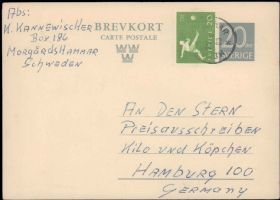 Abs:
K. KANNEWISCHER
Box 186
MORGÅRDSHAMMAR
SCHWEDEN
BREVKORT
CARTE POSTALE
20
SVERIGE
20
SVERIGE
AN DEN STERN
Preisausschreiben
Kilo und Köpchen
HAMBURG 100
GERMANY